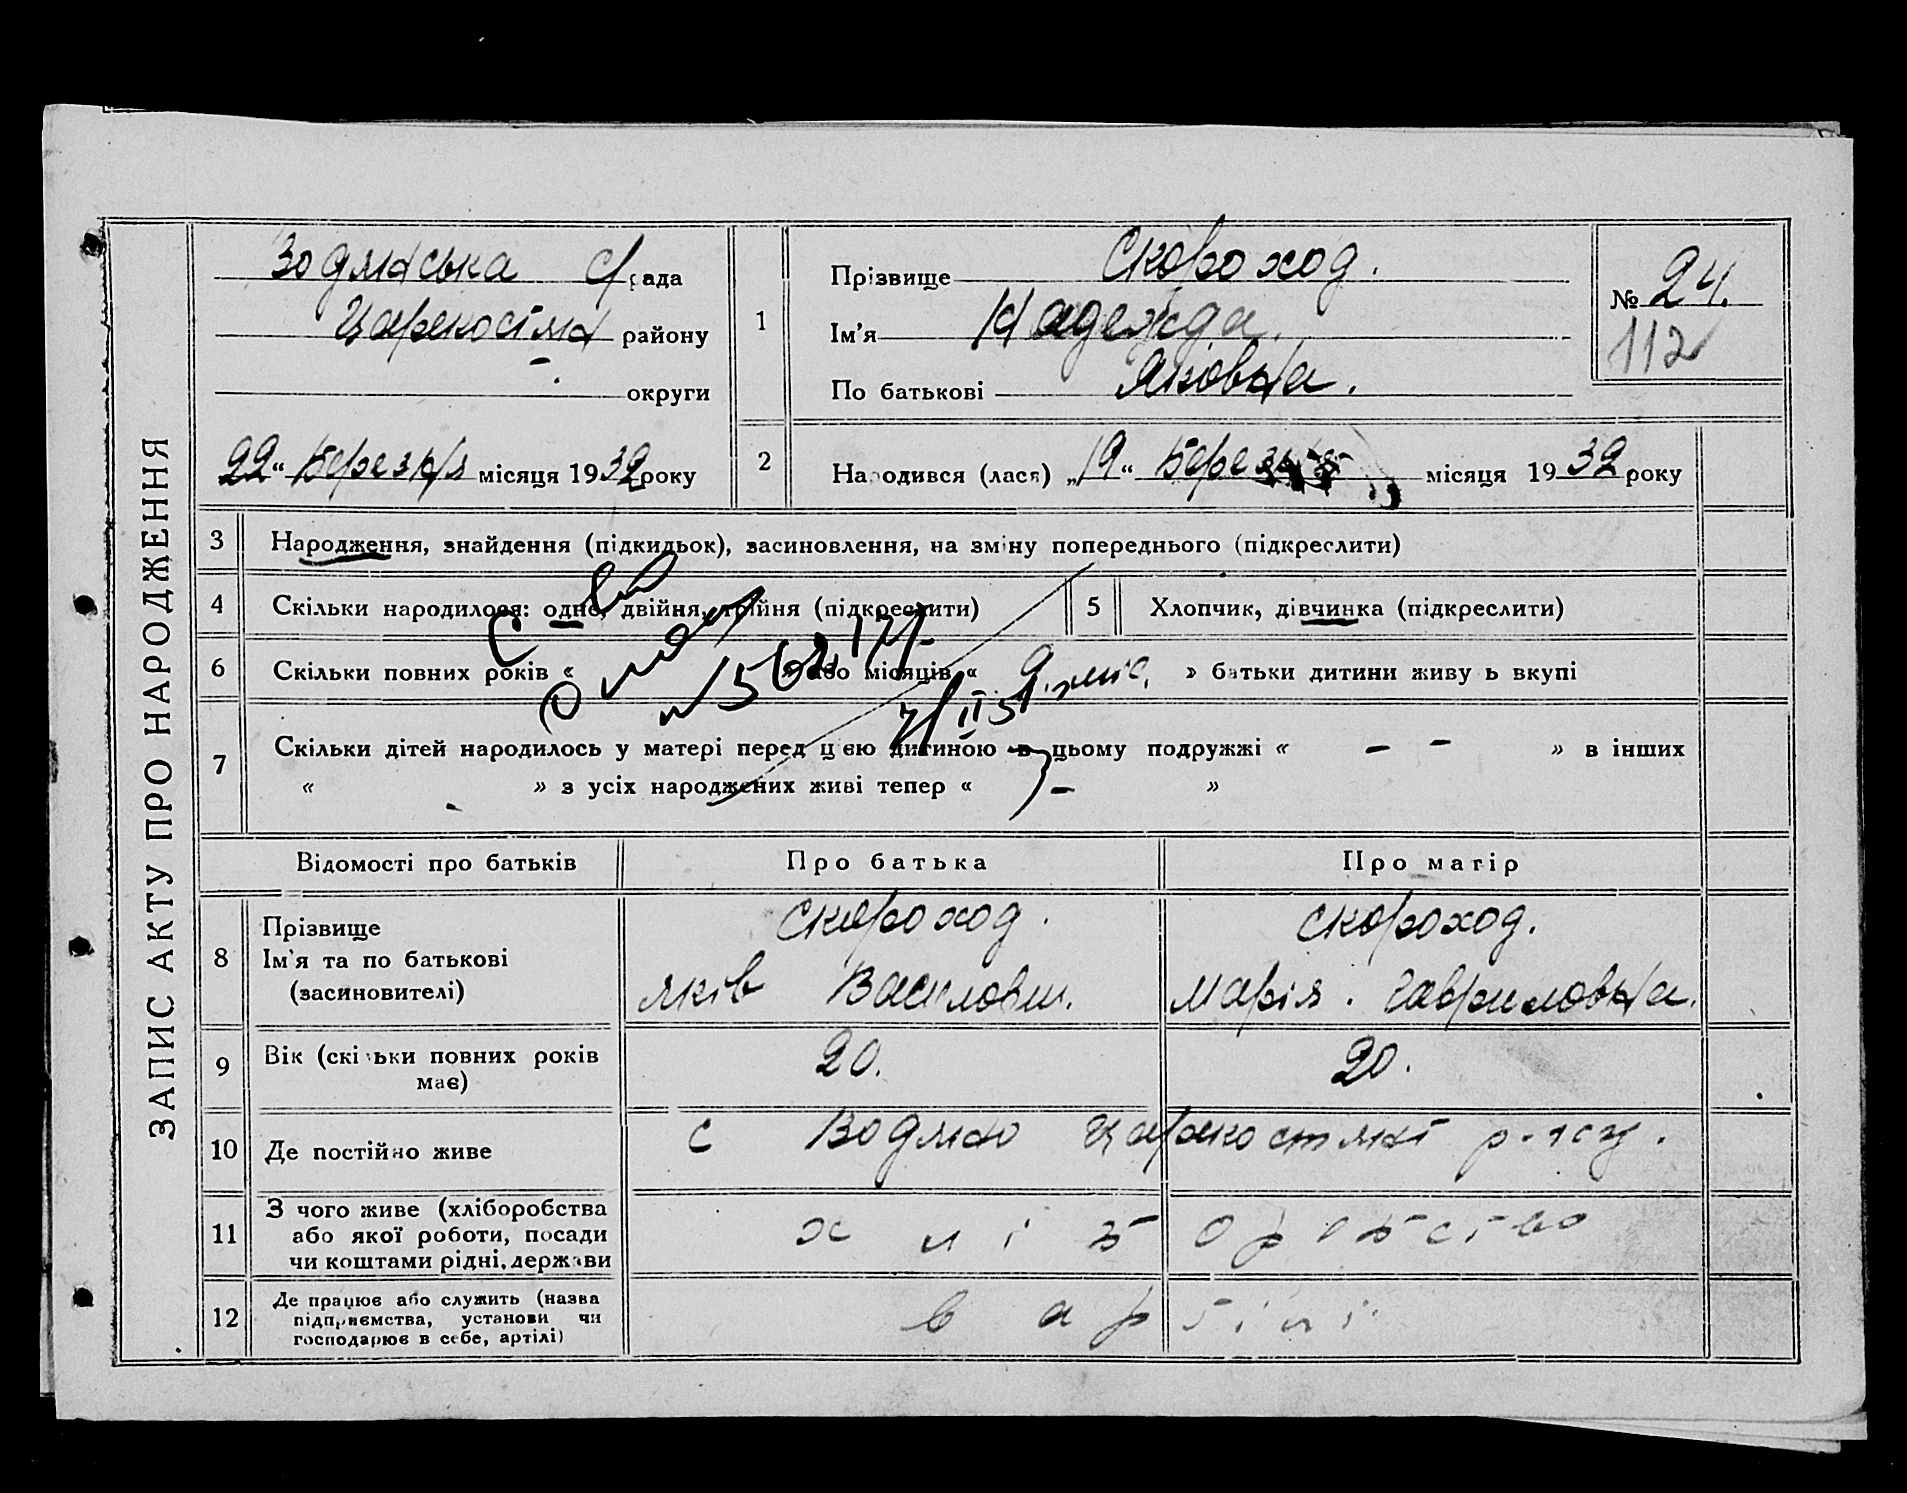 ЗАПИС АКТУ ПРО НАРОДЖЕННЯ
с/рада
району
округи
22 “ Березня місяця 1932 року
1
Прізвище Скороход.
Ім'я Надежда.
По батькові Яковна.
№ 24.
112
2
Народився (лася) „19“ Березня місяця 1932 року
3 Народження, знайдення (підкидьок), засиновлення, на зміну попереднього (підкреслити)
4 Скільки народилося: одне, двійня, трійня (підкреслити)
5 Хлопчик, дівчинка (підкреслити)
6 Скільки повних років « » або місяців « 9. міс. » батьки дитини живуть вкупі
7 Скільки дітей народилось у матері перед цією дитиною в цьому подружжі « – – » в інших
« » з усіх народжених живі тепер « – »
Відомості про батьків Про батька Про матір
8 Прізвище
Ім'я та по батькові
(засиновителі)
Скороход.
Яків Василовш.
Скороход.
Марія. Гавриловна.
9 Вік (скільки повних років має)
20. 20.
10 Де постійно живе
с р-ну.
11 З чого живе (хліборобства
або якої роботи, посади
чи коштами рідні, держави
хліборобство
12 Де працює або служить (назва
підприємства, установи чи
господарює в себе, артілі)
в артілі